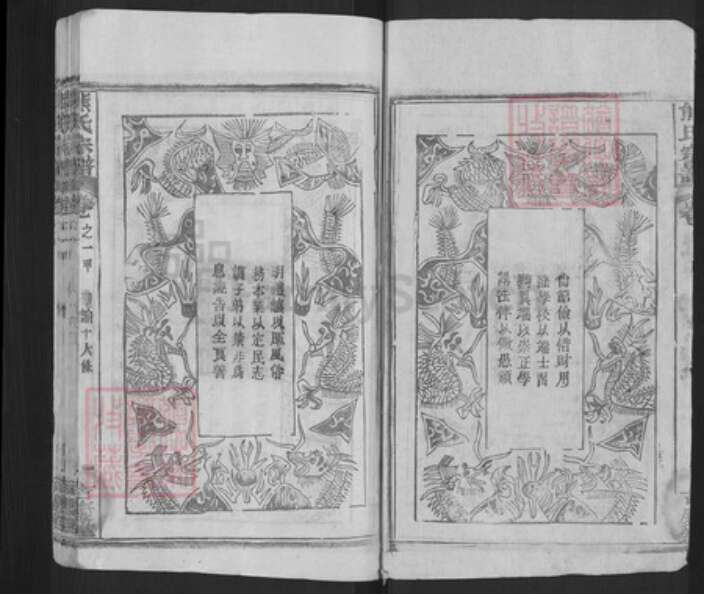 尚節儉以惜財用
隆學校以端士習
黜異端以崇正學
講法律以儆愚頑
明禮讓以厚風俗
務本業以定民志
訓子弟以禁非為
息誣告以全良善
熊氏宗譜
卷之一甲
聖諭十六條
熊氏宗譜